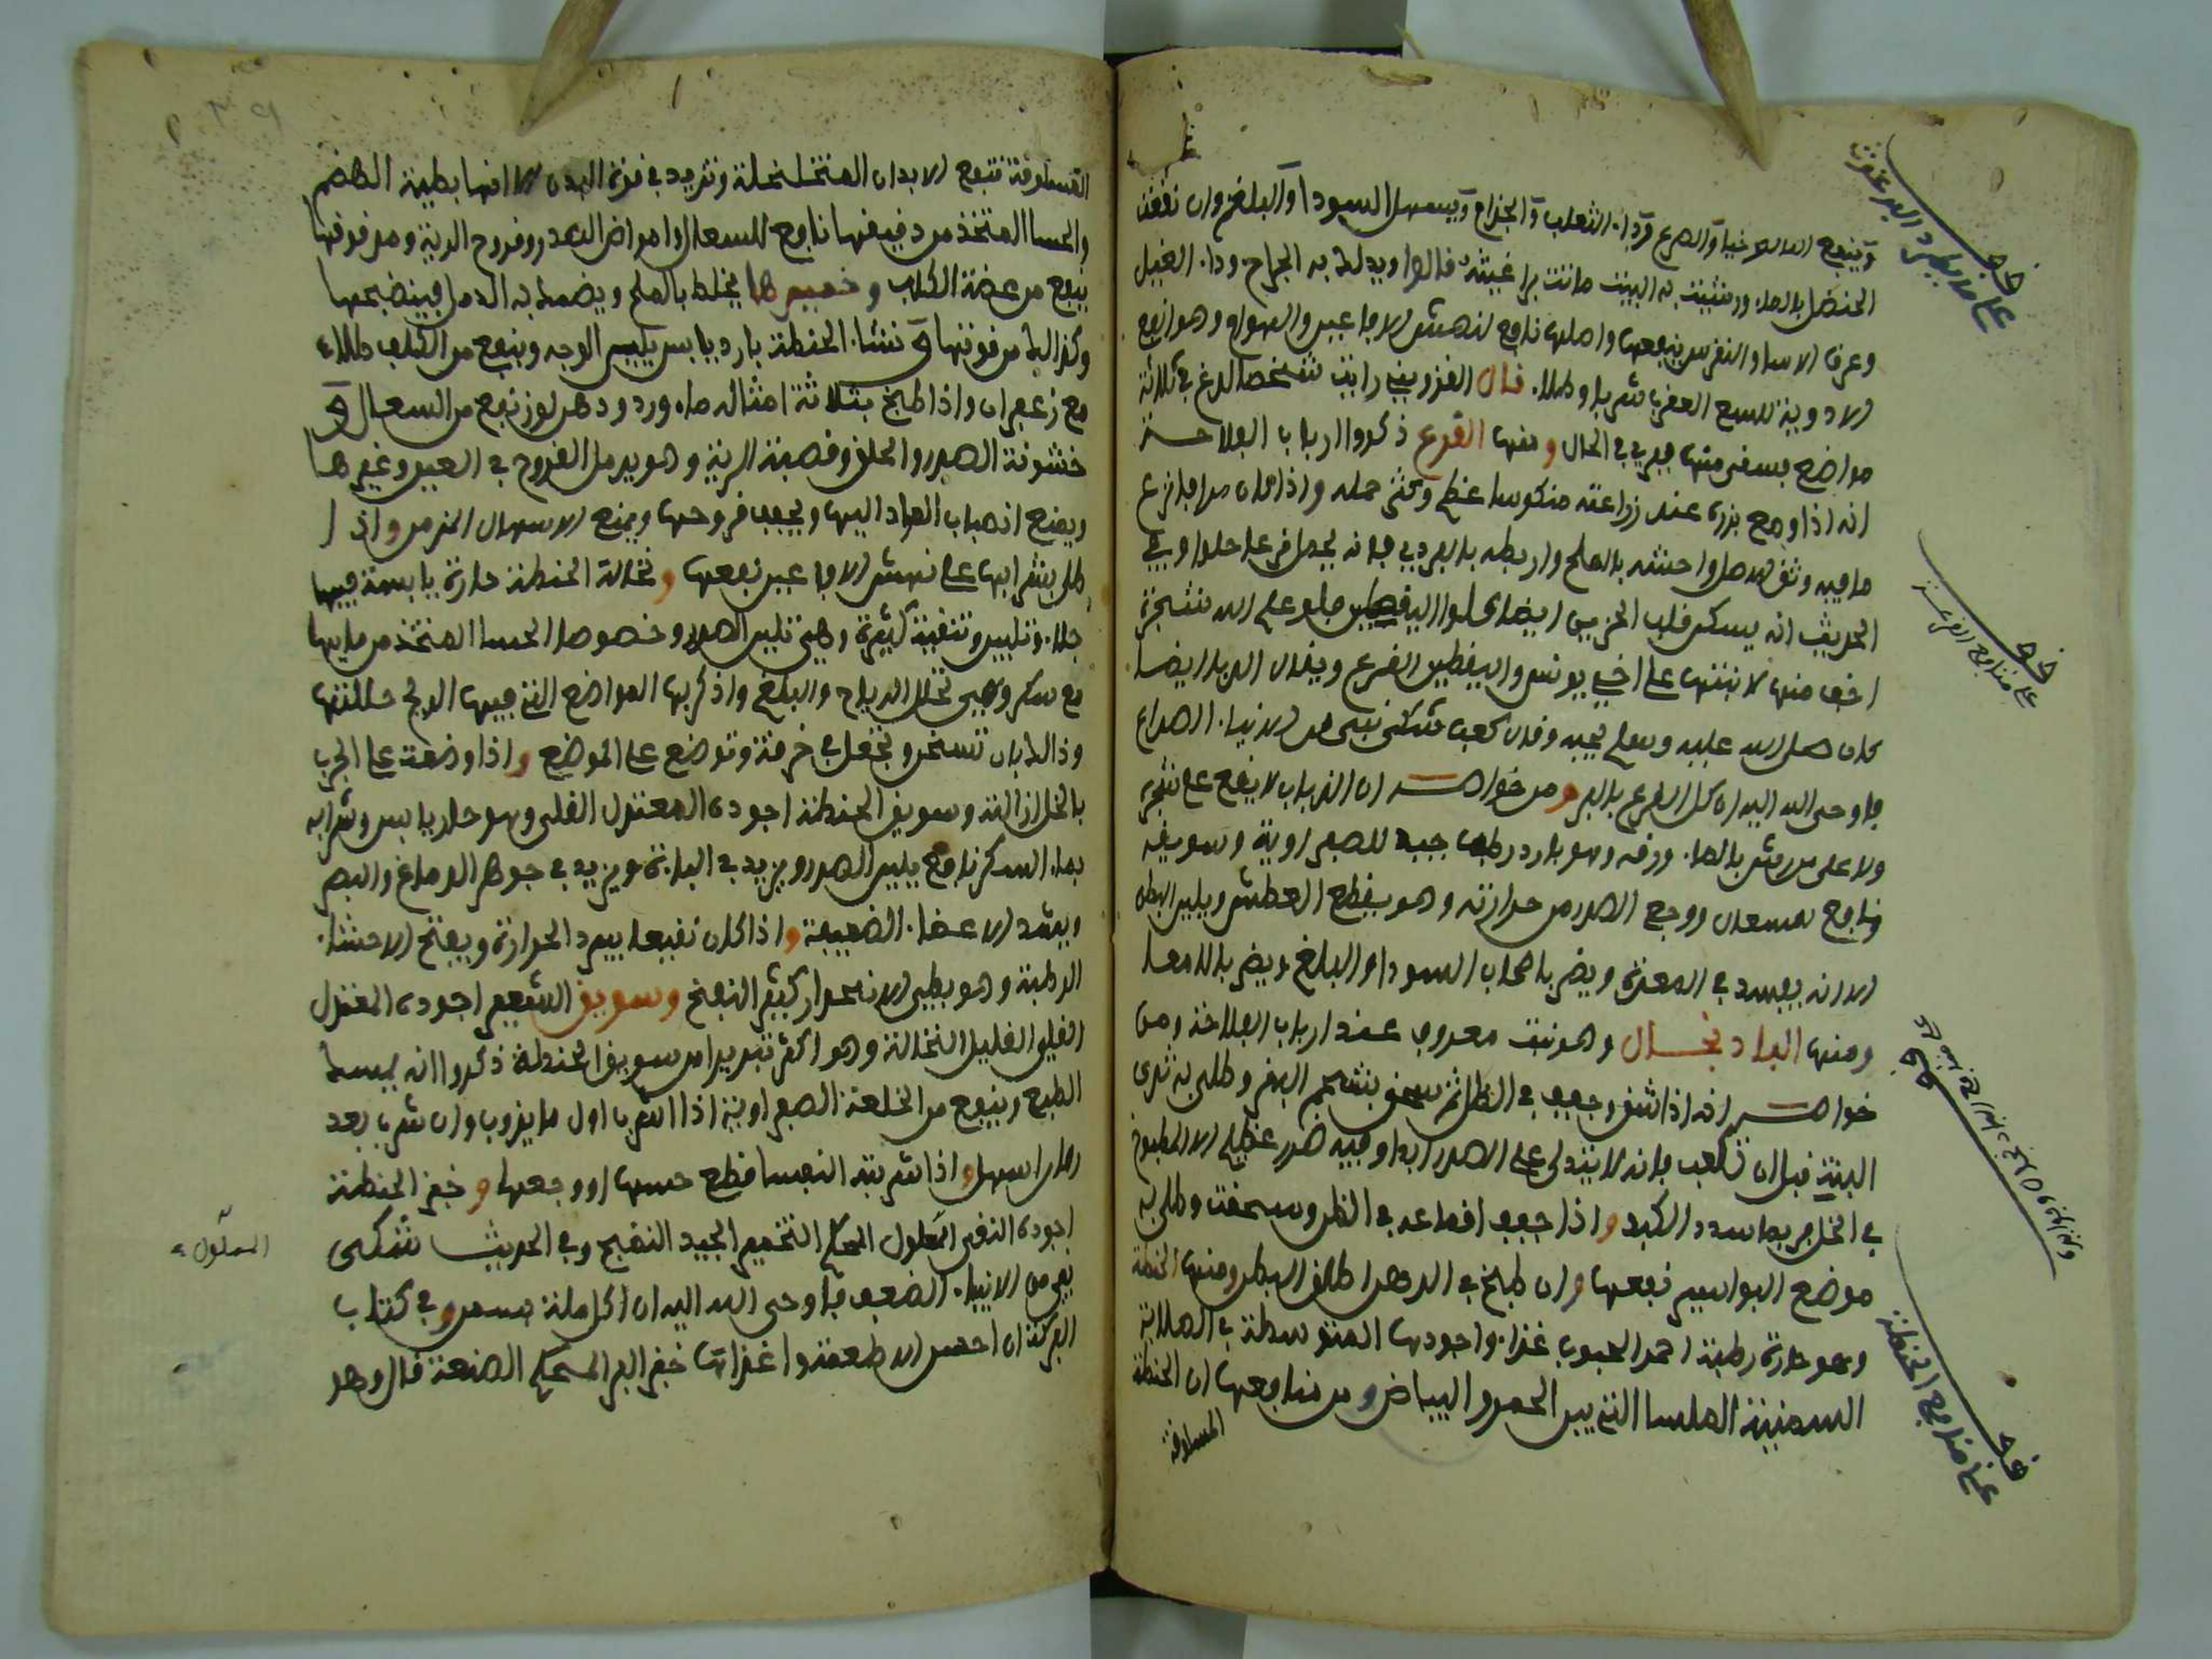 وينفع الماليخوليا والصرع وداء الثعلب والجذام ويسهل السوداء والبلغم وان نقعت
الحنظل بالماء ورشيت به البيت ماتت براغيثه قالوا ويدلك به الجراح وداء الفيل
وعرق الاسا والنقرس ينفعها واصلها نافع لنهش الافاعي والهوام وهو انفع
الادوية للسع العقرب شربا وطلاء قال القزويني رايت شخصا لدغ في ثلاثة
مواضع فسقي منها فبري في الحال ومنها القرع ذكروا ارباب الفلاحة
انه اذا وضع بزره عند زراعته منكوسا عظم وكثر حمله واذا
ما فيه واحشه بالملح واربطه فانه يحمل قرعا حلوا وفي
الحديث انه يسكن قلب الحزين ايضا كلوا اليقطين فلو علم الله شجرة
اخف منها لانبتها على اخي يونس واليقطين القرع ويقال الدبا ايضا
كان صلى الله عليه وسلم يحبه وقال كعب شكى نبي من الانبياء الصداع
فاوحى الله اليه ان كل القرع بالبر ومن خواصه ان الذباب لا يقع على شجره
ولا على من رش بالماء ورقه وهو بارد رطب جيد للصفراوية وسويقه
نافع للسعال ووجع الصدر من حرارته وهو يقطع العطش ويلين البطن
الا انه يفسد في المعدة ويضر باصحاب السوداء والبلغم ويضر بالامعا
ومنها الباذنجان وهو نبت معروف عند ارباب الفلاحة ومن
خواصه انه اذا شق وجفف في الظل ثم سحق بشحم البقر وطلي به ثدي
البنت قبل ان تكعب فانه لا يتدلى على الصدر ابدا وفيه ضرر عظيم الا المطبوخ
في الخل ربما سدد الكبد واذا جفف اقماعه في الظل وسحقت وطلي به
موضع البواسير نفعها وان طبخ في الدهن اطلق البطن ومنها الحنطة
وهو حارة رطبة احمد الحبوب غذاء واجودها المتوسطة في الصلابة
السمينة الملسا التي بين الحمرة والبياض ومن منافعها ان الحنطة
المسلوقة
فف على ما يطرد البرغوث
فف على منافع القرع
فف على منافع الحنطة
المسلوقة تنفع الابدان المتخلخلة وتزيد في قوة البدن الا انها بطيئة الهضم
والحسا المتخذ من دقيقها نافع للسعال وامراض الصدر وقروح الرية ومدقوقها
ينفع من عضة الكلب وخميرها يخلط بالملح ويضمد به الدمل فينضجها
وكذالك مدقوقها ونشاء الحنطة بارد يابس يلين الوجه وينفع من الكلف طلاء
مع زعفران واذا طبخ بثلاثة امثاله ماء ورد ودهن لوز نفع من السعال و
خشونة الصدر والحلق وقصبة الرية وهو يدمل القروح في العين وغيرها
ويمنع انصباب المواد اليها ويجفف قروحها ويمنع الاسهال المزمن واذا
طلي بشرابها على نهش الافاعي نفعها ونخالة الحنطة حارة يابسة فيها
جلاء وتليين وتنقية كثيرة وهي تلين الصدر وخصوصا الحسا المتخذ من مايها
مع سكر وهي تحلل الرياح والبلغم واذكر بها المواضع التي فيها الريح حللتها
وذالك بان تسخن وتجعل في خرقة وتوضع على الموضع واذا وضعت على الجرب
بالخل ازالته وسويق الحنطة اجوده المعتدل القلي وهو حار يابس وشرابه
بماء السكر نافع يلين الصدر ويزيد في الباءة ويزيد في جوهر الدماغ والبصر
ويشد الاعضاء الضعيفة واذا كان نقيعا يبرد الحرارة ويفتح الاحشاء
الرطبة وهو بطيء الانحدار كثير النفخ وسويق الشعير اجوده المعتدل
القلي القليل النخالة وهو اكثر تبريدا من سويق الحنطة ذكروا انه يمسك
الطبع وينفع من الخلفة الصفراوية اذا شرب اول ما يذوب وان شرب بعد
اسهل واذا شربته النفسا قطع حسها ووجعها وخبز الحنطة
اجوده النقي المعلول المحكم التخمير الجيد النضيج وفي الحديث شكى
نبي من الانبياء الضعف فاوحى الله اليه ان اكل ملة بسمن وفي كتاب
البركة ان احسن الاطعمة واغذاها خبز البر المحكم الصنعة قال وهو
المملول